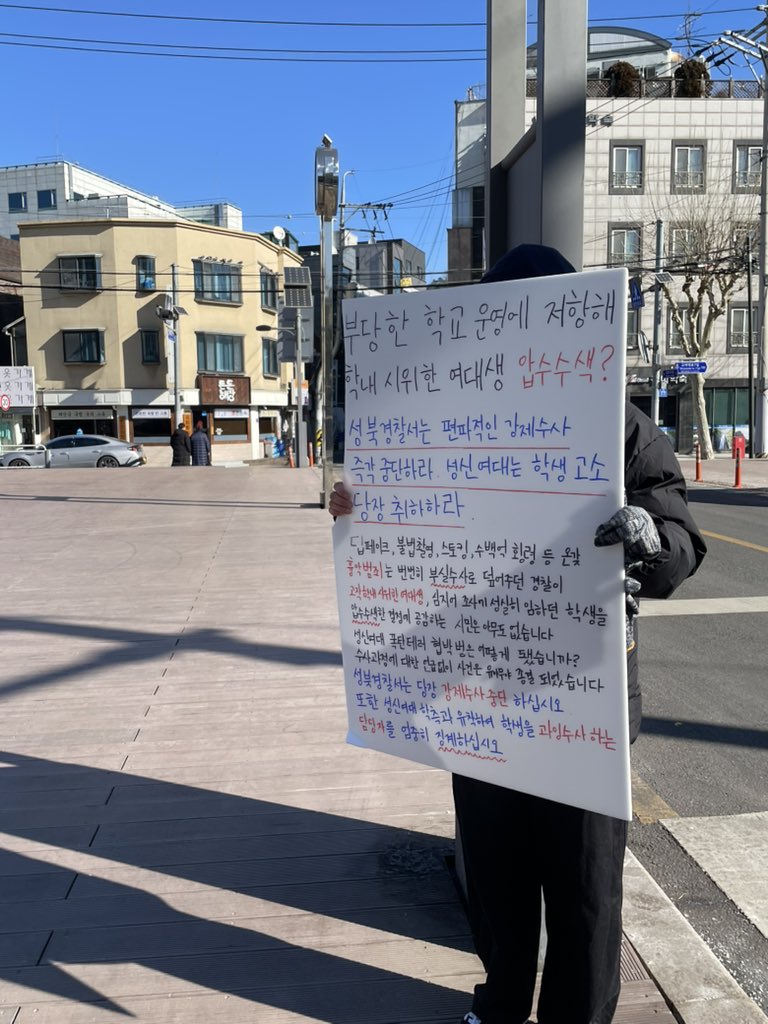 부당한 학교 운영에 저항해
학내 시위한 여대생 압수수색?
성북경찰서는 편파적인 강제수사
즉각 중단하라. 성신여대는 학생 고소
당장 취하하라.
딥페이크, 불법촬영, 스토킹, 수백억 횡령 등 온갖
흉악범죄는 번번히 부실수사로 덮어주던 경찰이
고작 학내 시위한 여대생, 심지어 조사에 성실히 임하던 학생을
압수수색한 결정에 공감하는 시민은 아무도 없습니다
성신여대 폭탄테러 협박범은 어떻게 됐습니까?
수사과정에 대한 언급없이 사건은 유야무야 종결 되었습니다
성북경찰서는 당장 강제수사 중단 하십시오
또한 성신여대 학측과 유착하여 학생을 과잉수사 하는
담당자를 엄중히 징계하십시오